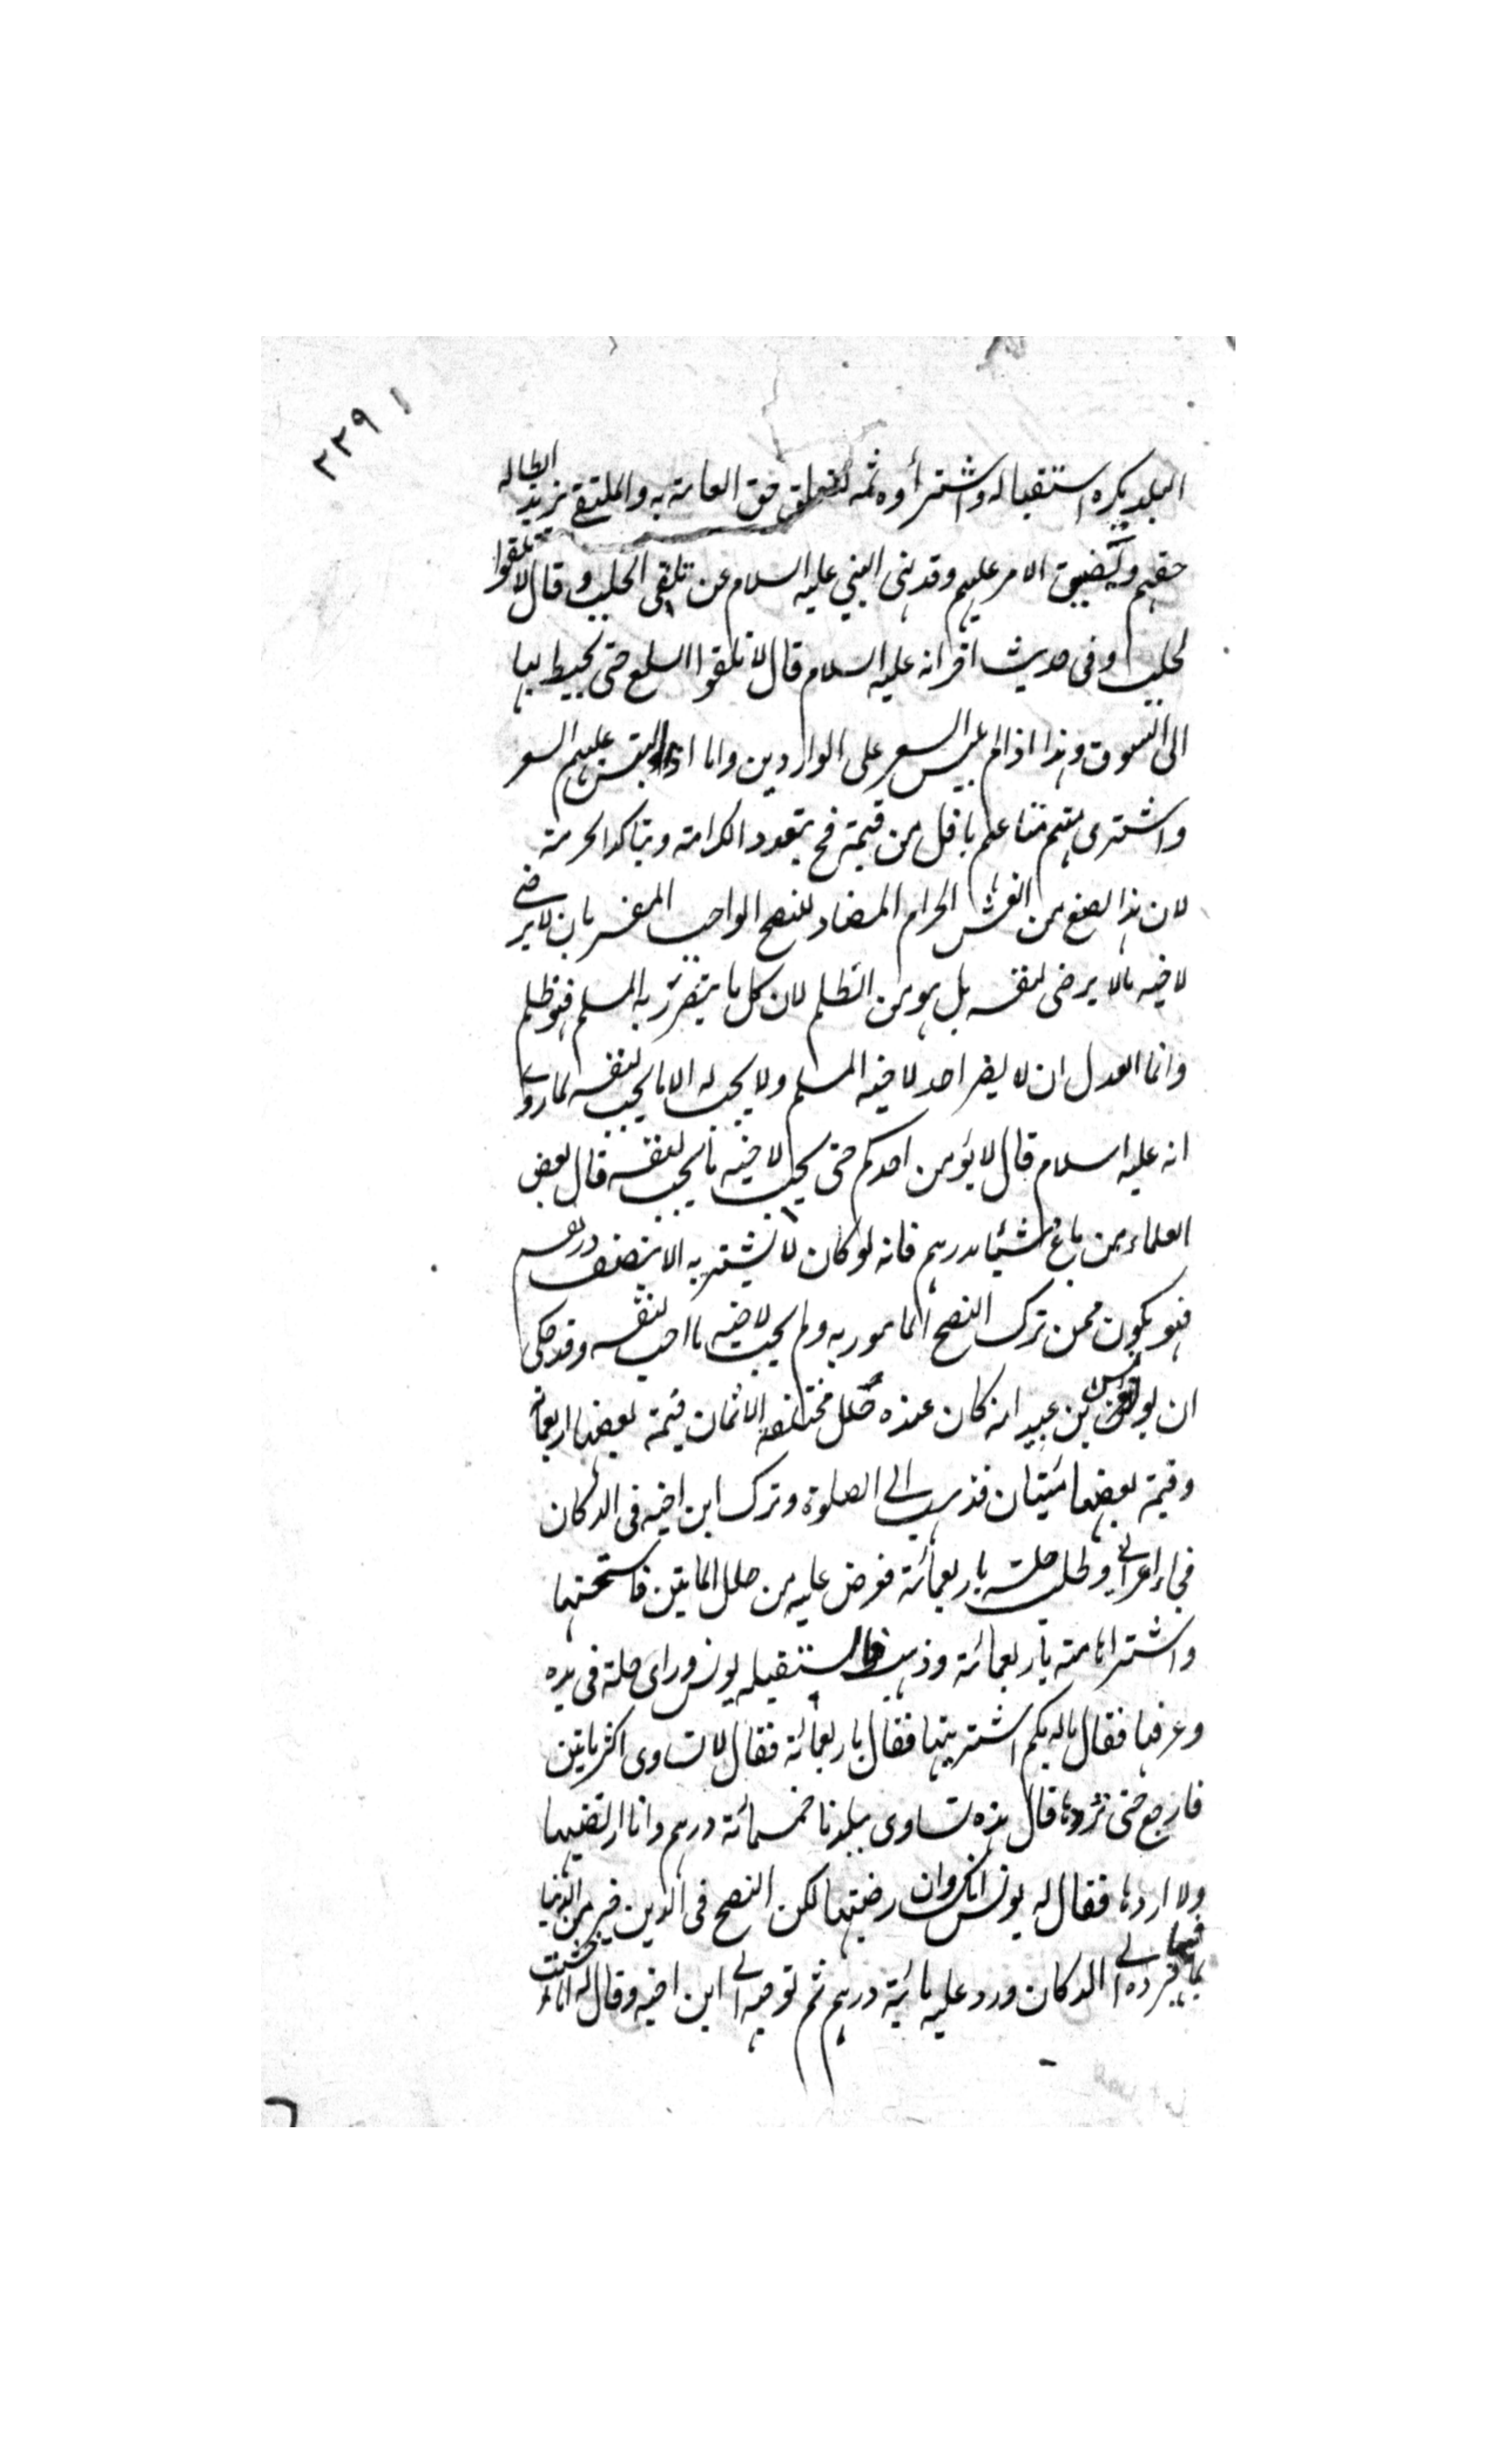 ٢٢٩
البلد يكره استقباله واشتراؤه ثمه لتعلق حق العامة به والملتقي يريد ابطاله
حقهم ويضيق الامر عليهم وقد نهى النبي عليه السلام عن تلقي الجلب وقال لا تلقوا
لجلب وفي حديث اخر انه عليه السلام قال لا تلقوا السلع حتى يحيط بها
الى السوق وهذا اذا لم يلبس السعر على الواردين واما اذا لبس عليهم السعر
واشترى منهم متاعهم باقل من قيمته فح يتعدد الكراهة ويتاكد الحرمة
لان هذا الصنع من الغش الحرام المضاد للنصح الواجب المفسر بان لا يرضى
لاخيه ما لا يرضى لنفسه بل هو من الظلم لان كل ما يتضرر به المسلم فهو ظلم
وانما العدل ان لا يضر احد لاخيه المسلم ولا يحب له الا ما يحب لنفسه لما روى
انه عليه السلام قال لا يؤمن احدكم حتى يحب لاخيه ما يحب لنفسه قال بعض
العلماء من باع شيئا بدرهم فانه لو كان لا يشتريه الا بنصف درهم
فهو يكون ممن ترك النصح المامور به ولم يحب لاخيه ما احب لنفسه وقد حكى
ان يونس بن عبيد انه كان عنده حلل مختلفة الاثمان قيمة بعضها اربعمائة
وقيمة بعضها مئيتان فذهب الى الصلوة وترك ابن اخيه في الدكان
فجاء اعرابي وطلب حلة باربعمائة فعرض عليه من حلل المايتين فاستحسنها
واشتراها منه باربعمائة وذهب فاستقبله يونس وراى حلة في يده
وعرفها فقال له بكم اشتريتها فقال باربعمائة فقال لا تساوى اكثر مايتين
فارجع حتى تردها قال هذه تساوى ببلدنا خمسمائة درهم وانا ارتضيها
ولا اردها فقال له يونس انك وان رضيتها لكن النصح في الدين خير من الدنيا
بما فيها فرده الى الدكان ورد عليه مائية درهم ثم توجه الى ابن اخيه وقال له اما خشيت